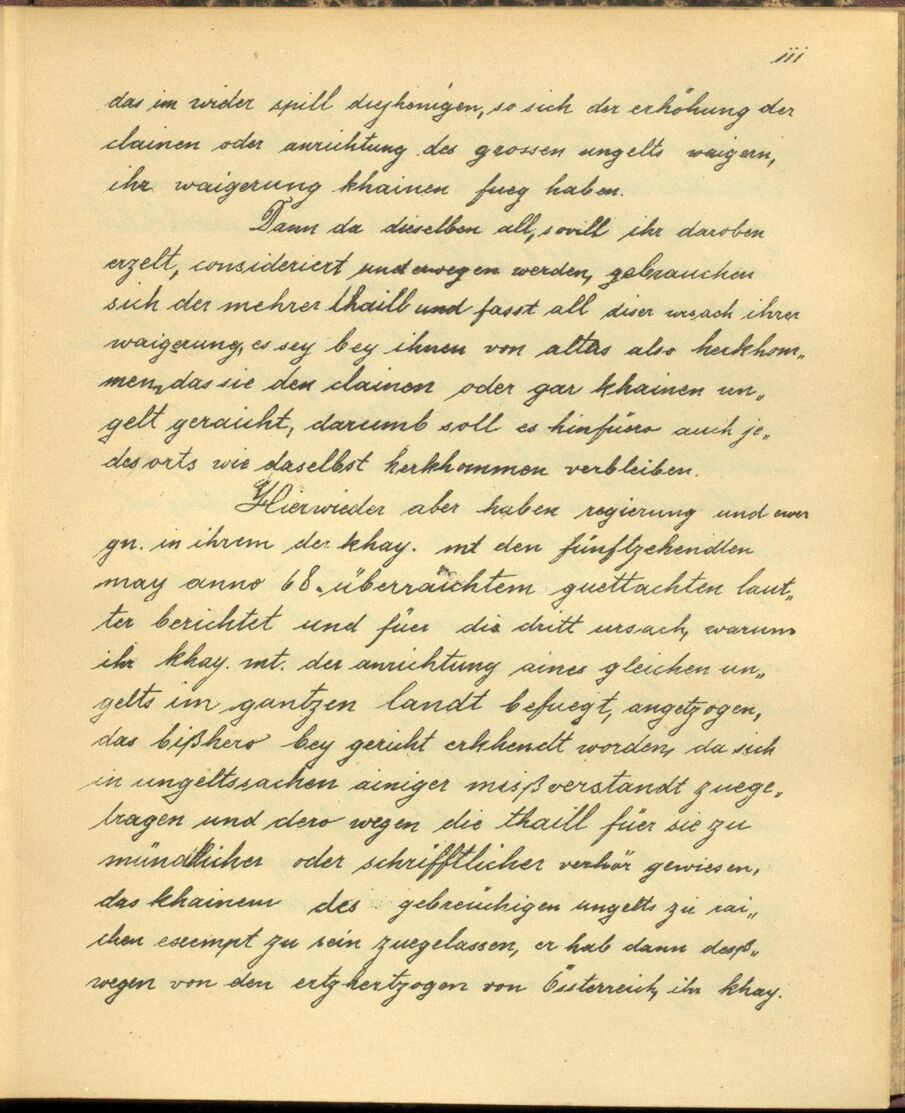 iii
das im wider spill dieyhenigen, so sich der erhöhung der
clainen oder anrichtung des grossen ungelts waigern,
ihr waigerung khainen fueg haben.
Dann da dieselben all, sovill ihr daroben
erzelt, consideriert und erwegen werden, gebrauchen
sich der mehrer thaill und fasst all diser ursach ihrer
waigerung, es sey bey ihnen von alters also herkhom„
men, das sie den clainen oder gar khainen un„
gelt geraicht, darumb soll es hinfüero auch je„
des orts wie daselbst herkhommen verbleiben.
Hierwieder aber haben regierung und ewer
gn. in ihrem der khay. mt den fünftzehendten
may anno 68. überraichtem guettachten laut„
ter berichtet und füer die dritt ursach, warum
ihr khay. mt. der anrichtung aines gleichen un„
gelts im gantzen landt befuegt, angetzogen,
das bißhero bey gericht erkhendt worden, da sich
in ungeltssachen ainiger misßverstandt zuege„
tragen und dero wegen die thaill füer sie zu
mündtlicher oder schrifftlicher verhör gewiesen,
das khainem des gebreüchigen ungelts zu rai„
chen exempt zu sein zuegelassen, er hab dann desß„
wegen von den ertzhertzogen von Össterreich, ihr khay.